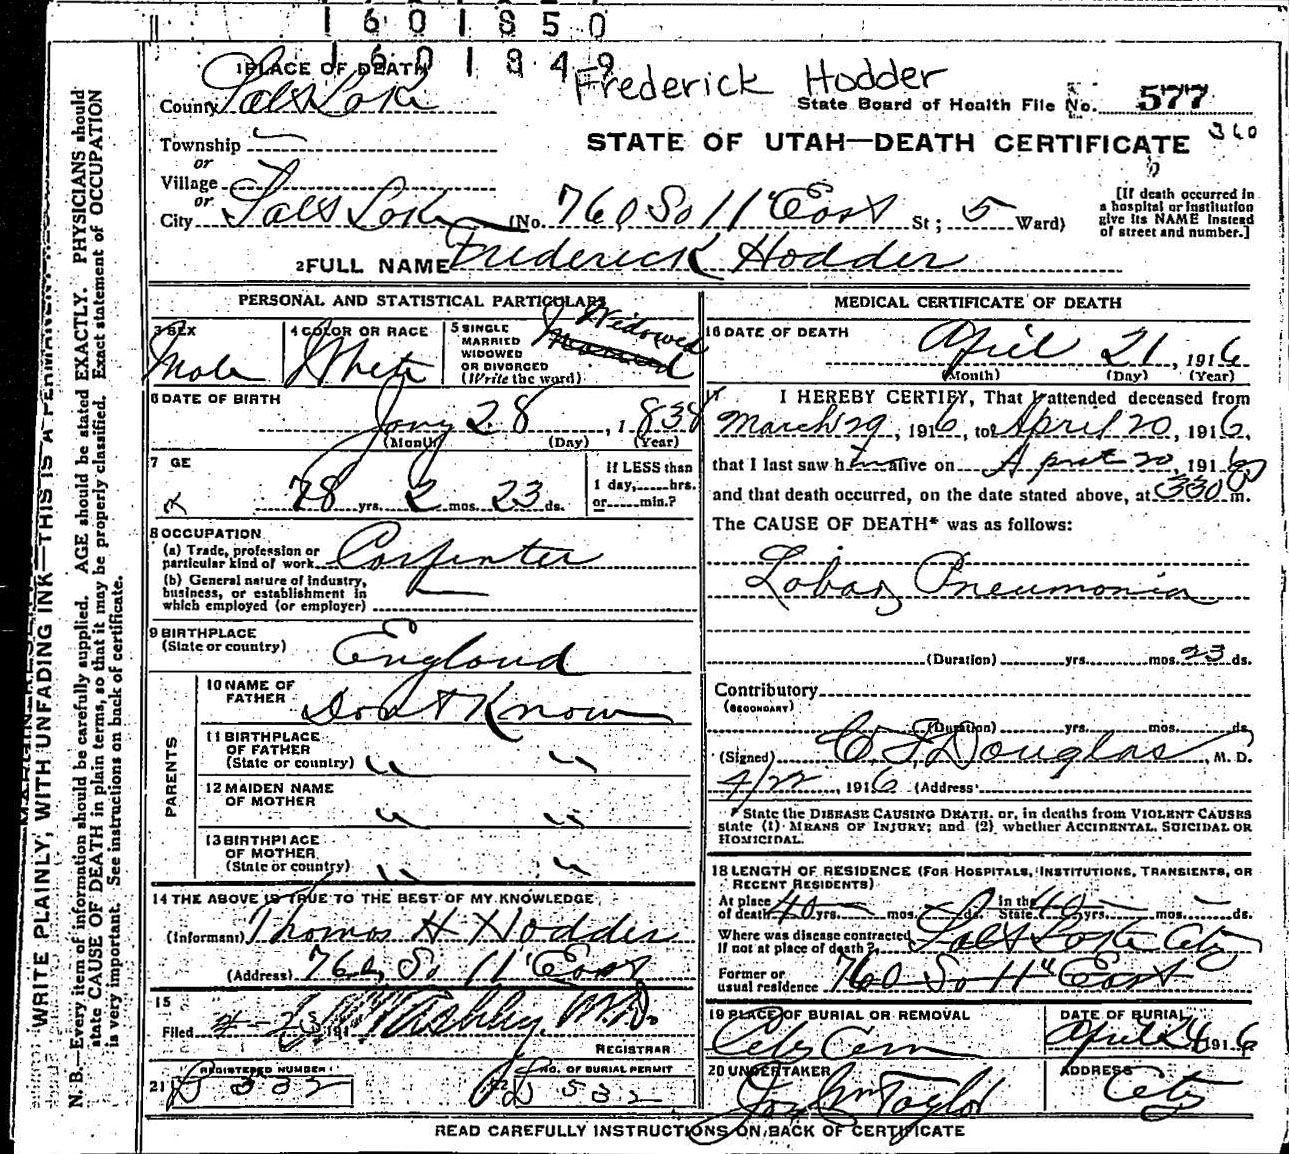 1601850
1601849
Frederick Hodder
1 PLACE OF DEATH
County Salt Lake
State Board of Health File No. 577
Township
STATE OF UTAH—DEATH CERTIFICATE 360
or
Village
or
City Salt Lake (No. 760 So 11" East St; 5 Ward)
[If death occurred in
a hospital or institution
give its NAME instead
of street and number.]
2 FULL NAME Frederick Hodder
PERSONAL AND STATISTICAL PARTICULARS
3 SEX
Male
4 COLOR OR RACE
White
5 SINGLE
MARRIED
WIDOWED
OR DIVORCED
(Write the word)
Widowed
Married
6 DATE OF BIRTH
Jany 28, 1838
(Month) (Day) (Year)
7 GE
78 yrs. 2 mos. 23 ds.
If LESS than
1 day,......hrs.
or......min.?
8 OCCUPATION
(a) Trade, profession or
particular kind of work Carpenter
(b) General nature of industry,
business, or establishment in
which employed (or employer)
9 BIRTHPLACE
(State or country) England
PARENTS
10 NAME OF
FATHER Dont Know
11 BIRTHPLACE
OF FATHER
(State or country) " "
12 MAIDEN NAME
OF MOTHER " "
13 BIRTHPLACE
OF MOTHER
(State or country) " "
14 THE ABOVE IS TRUE TO THE BEST OF MY KNOWLEDGE
(Informant) Thomas H Hodder
(Address) 760 So 11" East
15
Filed 4-25 191 Ashby, M.D.
REGISTRAR
21 REGISTERED NUMBER
D 532
22 NO. OF BURIAL PERMIT
D 532
MEDICAL CERTIFICATE OF DEATH
16 DATE OF DEATH
April 21, 1916
(Month) (Day) (Year)
I HEREBY CERTIFY, That I attended deceased from
March 29, 1916, to April 20, 1916,
that I last saw him alive on April 20, 1916,
and that death occurred, on the date stated above, at 330 m.
The CAUSE OF DEATH* was as follows:
Lobar Pneumonia
(Duration) yrs. mos. 23 ds.
Contributory
(SECONDARY)
(Duration) yrs. mos. ds.
(Signed) C. F. Douglas, M. D.
4/22, 1916 (Address)
*State the DISEASE CAUSING DEATH, or, in deaths from VIOLENT CAUSES
state (1) MEANS OF INJURY; and (2) whether ACCIDENTAL, SUICIDAL OR
HOMICIDAL.
18 LENGTH OF RESIDENCE (FOR HOSPITALS, INSTITUTIONS, TRANSIENTS, OR
RECENT RESIDENTS)
At place
of death 40 yrs. mos. ds. In the
State 40 yrs. mos. ds.
Where was disease contracted
If not at place of death? Salt Lake City
Former or
usual residence 760 So 11" East
19 PLACE OF BURIAL OR REMOVAL
City Cem
DATE OF BURIAL
April 24 1916
20 UNDERTAKER
Jos Wm Taylor
ADDRESS
City
READ CAREFULLY INSTRUCTIONS ON BACK OF CERTIFICATE
WRITE PLAINLY, WITH UNFADING INK—THIS IS A PERMANENT
N. B.—Every item of information should be carefully supplied. AGE should be stated EXACTLY. PHYSICIANS should
state CAUSE OF DEATH in plain terms, so that it may be properly classified. Exact statement of OCCUPATION
is very important. See instructions on back of certificate.